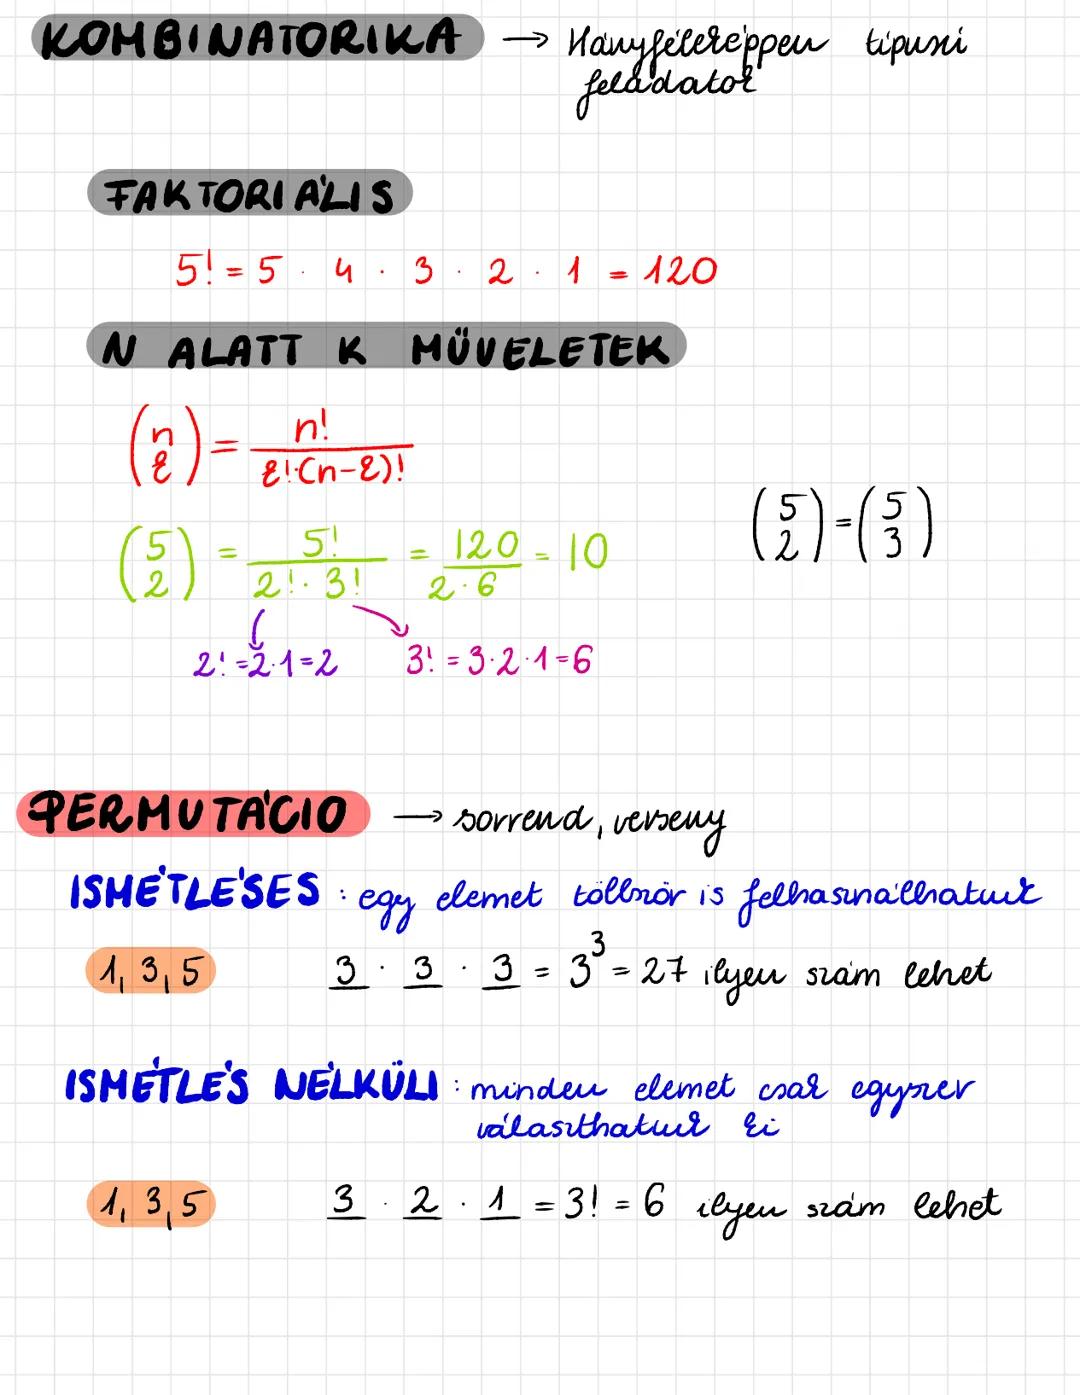 KOMBINATORIKA → Hányféleképpen típusú
feladatok
FAKTORIÁLIS
5! = 5 · 4 · 3 · 2 · 1 = 120
N ALATT K MŰVELETEK
(n k) = n! / k!·(n-k)!
(5 2) = 5! / 2!·3! = 120 / 2·6 = 10
(5 2) = (5 3)
2! = 2·1 = 2
3! = 3·2·1 = 6
PERMUTÁCIÓ → sorrend, verseny
ISMÉTLÉSES : egy elemet többször is felhasználhatunk
1, 3, 5
3 · 3 · 3 = 3³ = 27 ilyen szám lehet
ISMÉTLÉS NÉLKÜLI : minden elemet csak egyszer
választhatunk ki
1, 3, 5
3 · 2 · 1 = 3! = 6 ilyen szám lehet